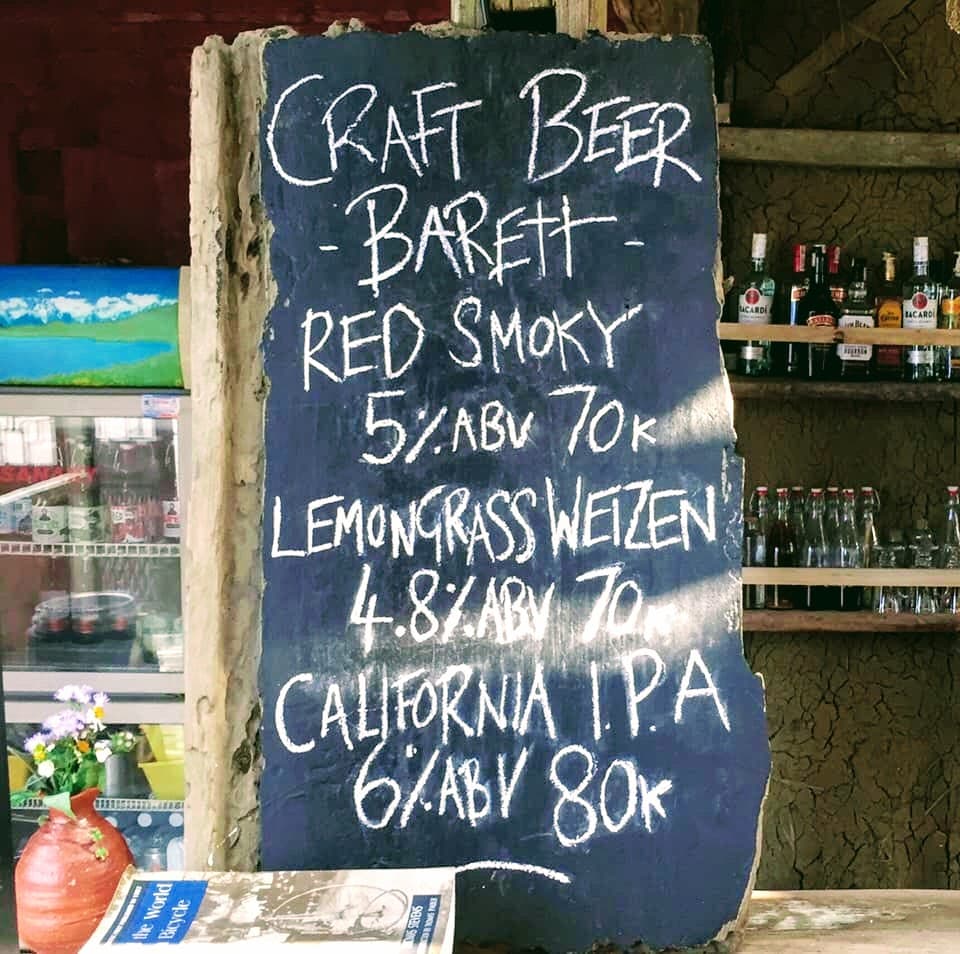 CRAFT BEER
- BARETT -
RED SMOKY
5% ABV 70K
LEMONGRASS WEIZEN
4.8% ABV 70K
CALIFORNIA I.P.A
6% ABV 80K
BACARDI
JIM BEAM
BOURBON
BACARDI
the World
Bicycle